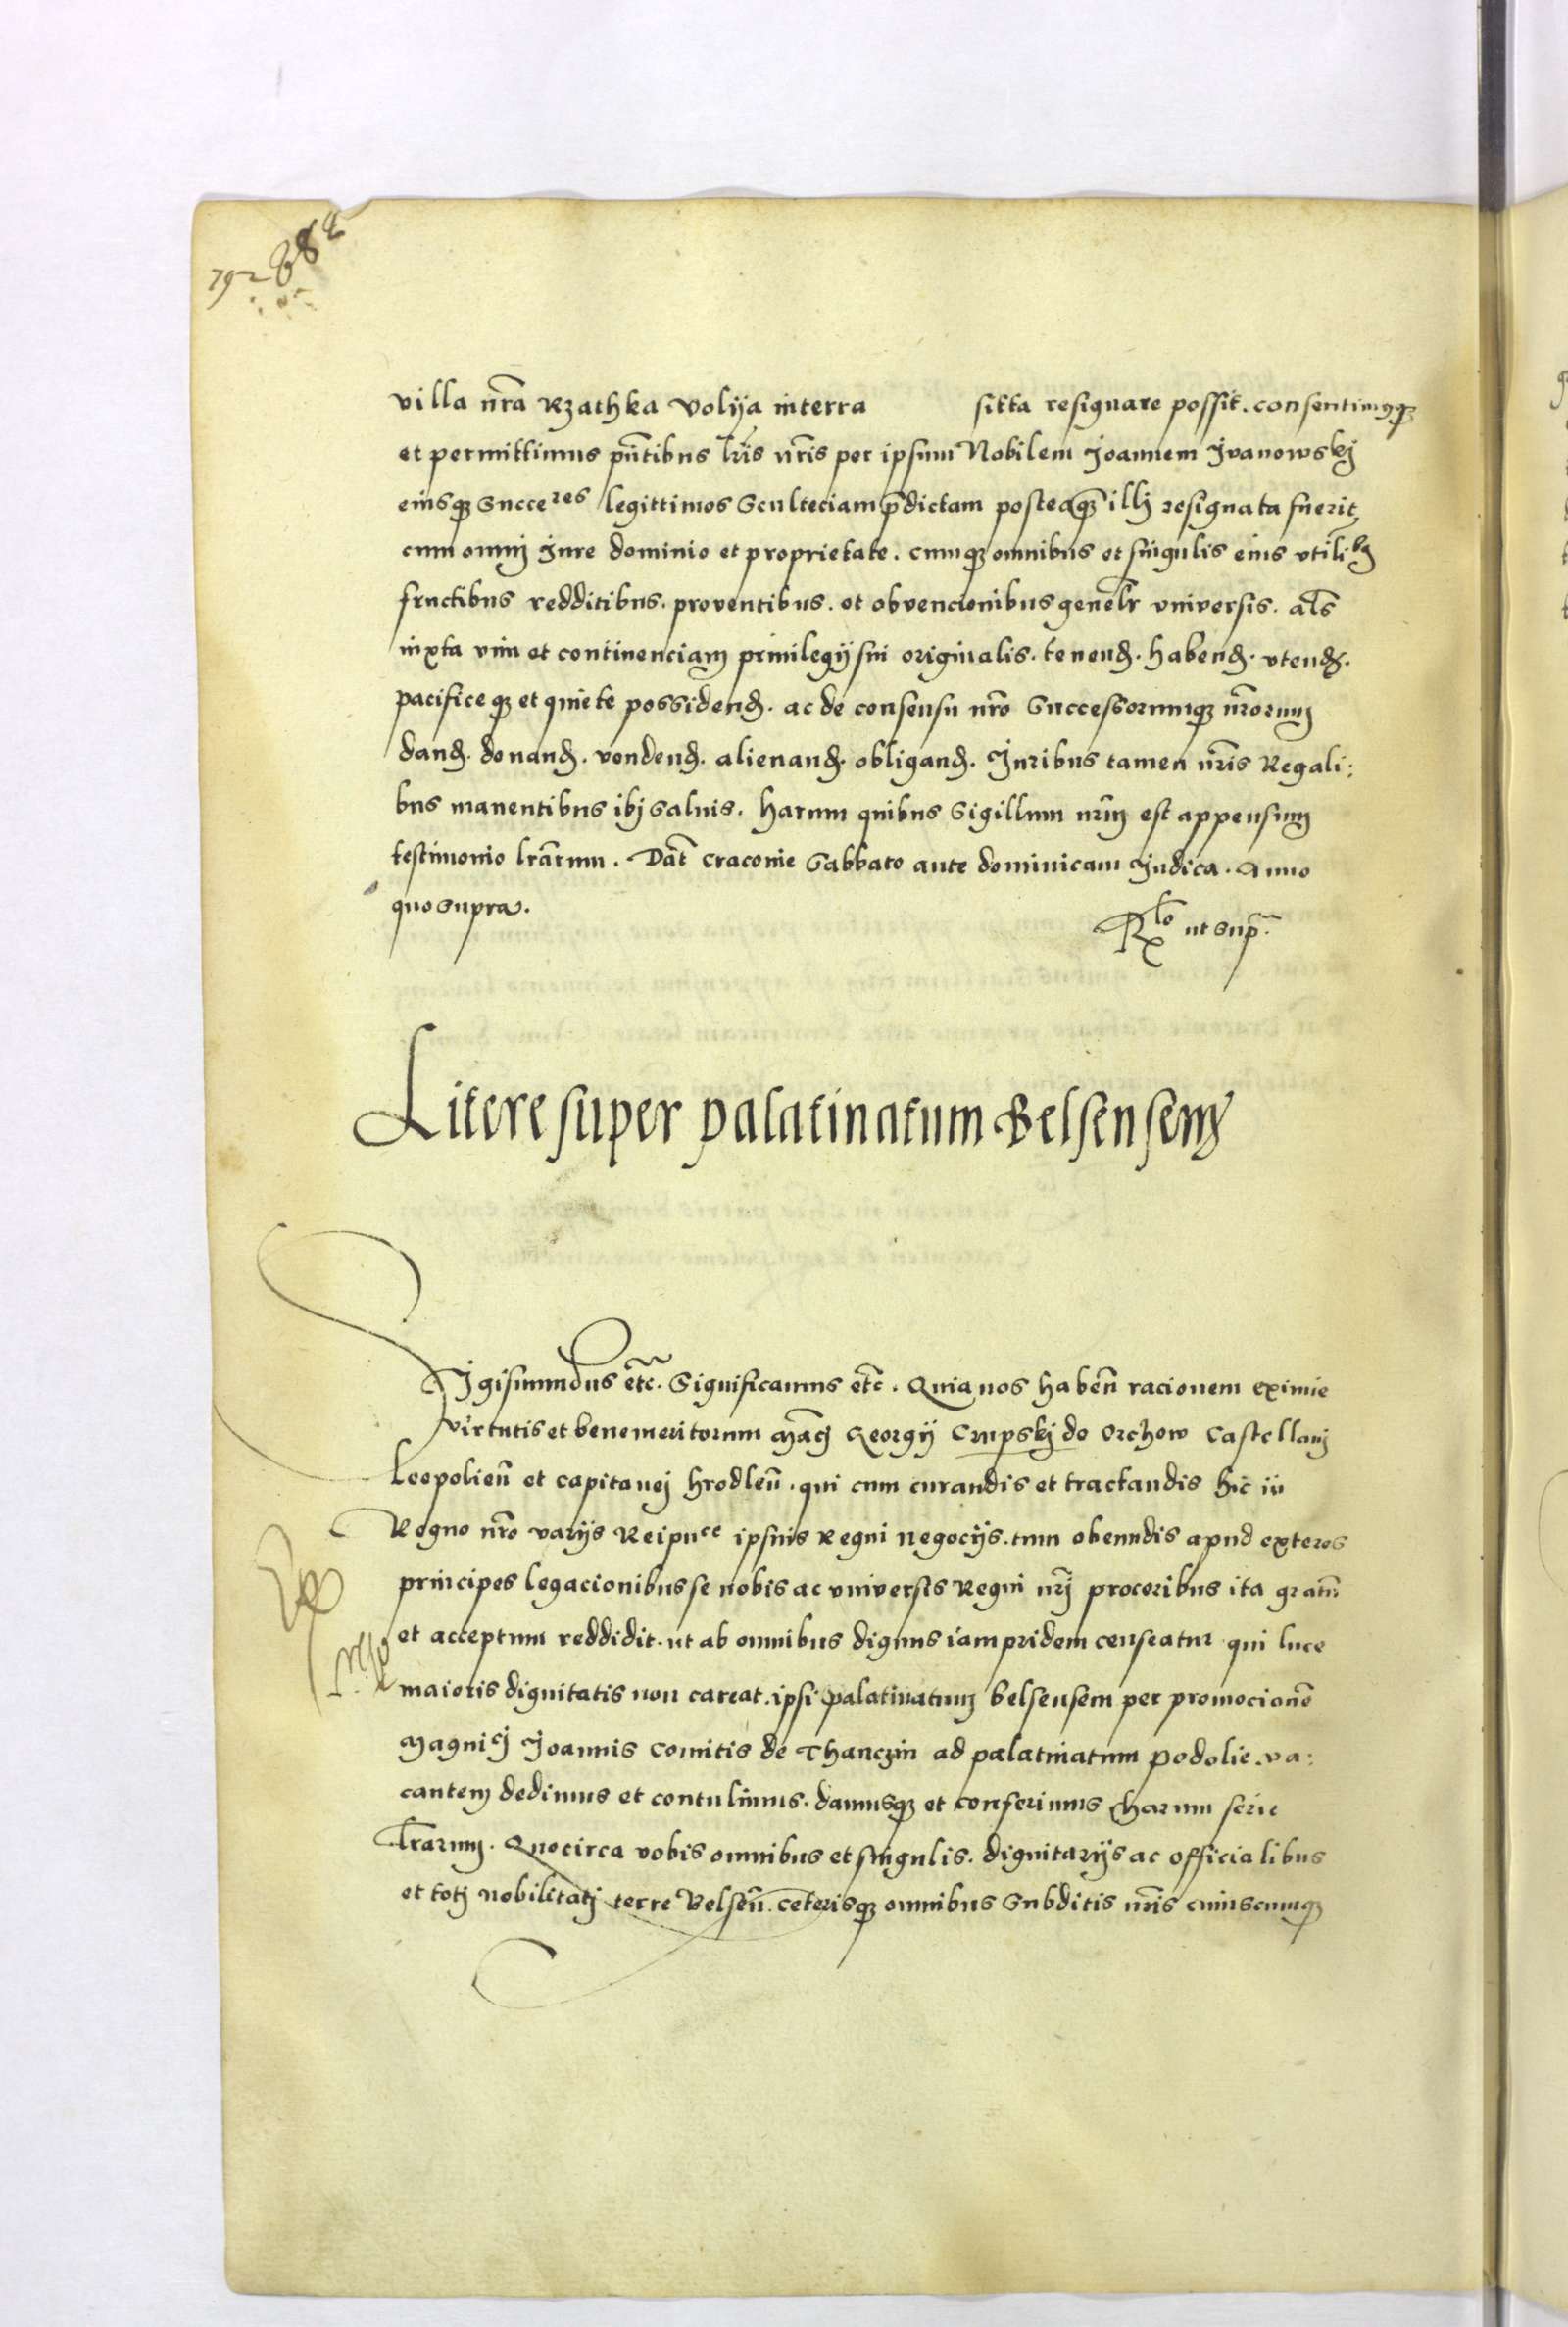 792 882
villa nr̃a Rzathka Volija interra sitta resignare possit. consentimusq3
et permittimus pñtibus lr̃is nr̃is per ipsum Nobilem Joannem Jvanowskj
eiusq3 Succeres legittimos Sculteciam p̃dictam posteaq3 illj resignata fuerit,
cum omnj Jure dominio et proprietate. cumq3 omnibus et singulis eius vtilibus
fructibus redditibus. proventibus. et obvencionibus genel̃r vniversis. al̃s
iuxta vim et continenciam privilegij sui originalis. tenend. habend. vtend.
pacificeq3 et quiete possidend. ac de consensu nr̃o Successorumq3 nr̃orum
dand. donand. vendend. alienand. obligand. Juribus tamen nr̃is Regali:
bus manentibus ibj salvis. Harum quibus Sigillum nr̃m est appensum
testimonio lr̃arum. Dat̃ Cracovie Sabbato ante dominicam Judica. Anno
quo supra.
Rlo ut sup̃.
Litere super palatinatum Belsensem
Sigismundus etc̃. Significamus etc̃. Quia nos haben̄ racionem eximie
virtutis et benemeritorum Mãcj Georgij Crupskj de Orchow Castellanj
Leopolien̄ et capitanej Hrodlen̄. qui cum curandis et tractandis hic in
Regno nr̃o varijs Reipuce ipsius Regni negocijs. tum obeundis apud exteros
principes legacionibus se nobis ac vniversis Regni nr̃j proceribus ita gratũ
et acceptum reddidit. ut ab omnibus dignus iampridem censeatur qui luce
maioris dignitatis non careat. ipsi palatinatum belsensem per promocionẽ
Magnicj Joannis Comitis de Thanczin ad palatinatum Podolie. va:
cantem dedimus et contulimus. damusq3 et conferimus harum serie
lr̃arum. Quocirca vobis omnibus et singulis. dignitarijs ac officialibus
et totj nobilitatj terre Belsen̄. ceterisq3 omnibus Subditis nr̃is cuiuscumq3